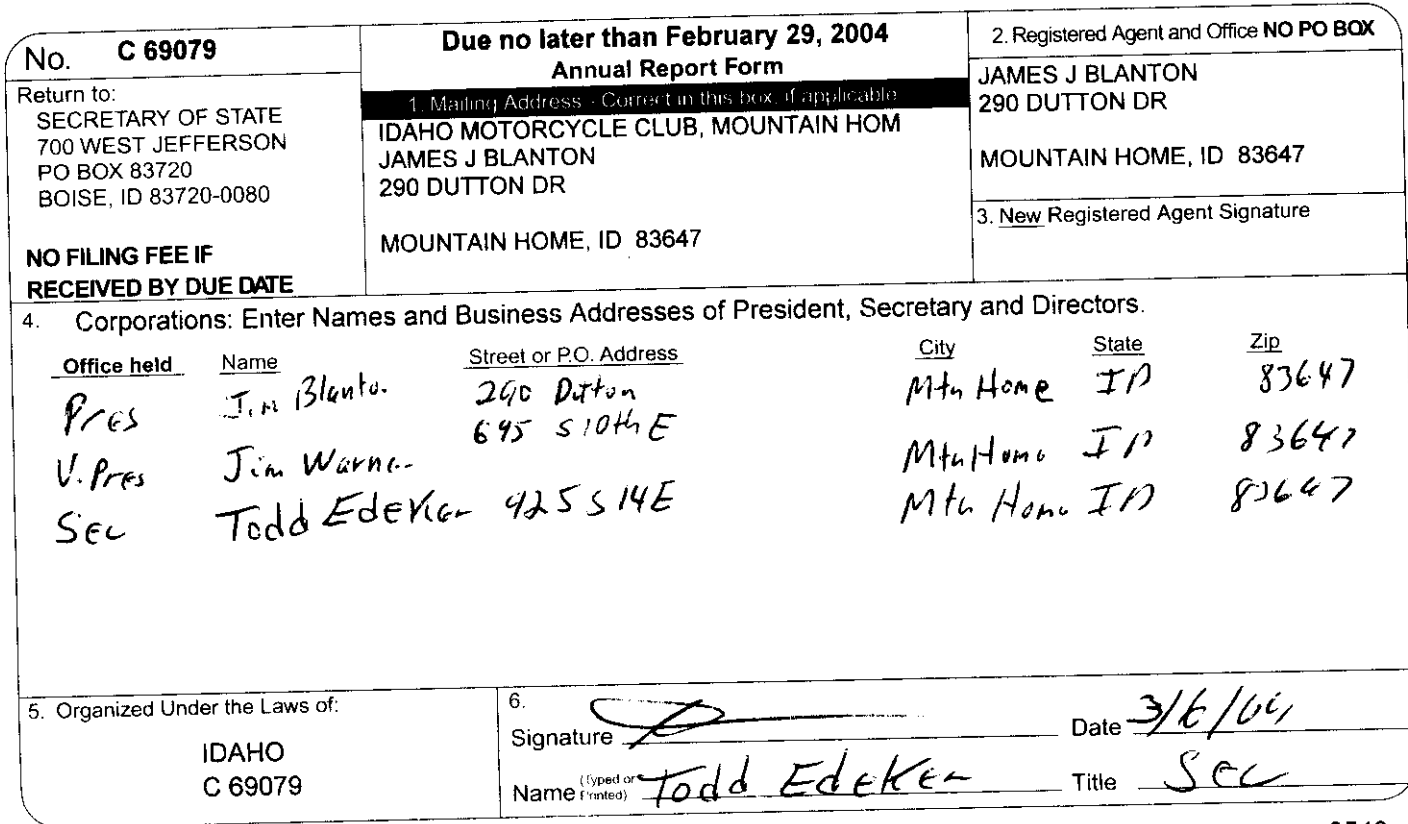 No. C 69079
Return to:
SECRETARY OF STATE
700 WEST JEFFERSON
PO BOX 83720
BOISE, ID 83720-0080
NO FILING FEE IF
RECEIVED BY DUE DATE
Due no later than February 29, 2004
Annual Report Form
1. Mailing Address - Correct in this box, if applicable
IDAHO MOTORCYCLE CLUB, MOUNTAIN HOM
JAMES J BLANTON
290 DUTTON DR
MOUNTAIN HOME, ID 83647
2. Registered Agent and Office NO PO BOX
JAMES J BLANTON
290 DUTTON DR
MOUNTAIN HOME, ID 83647
3. New Registered Agent Signature
4. Corporations: Enter Names and Business Addresses of President, Secretary and Directors.
Office held Name Street or P.O. Address City State Zip
Pres Jim Blanton 290 Dutton Mtn Home ID 83647
V. Pres Jim Warner 695 S 10th E Mtn Home ID 83647
Sec Todd Edeker 425 S 14 E Mtn Home ID 83647
5. Organized Under the Laws of:
IDAHO
C 69079
6.
Signature Date 3/6/04
Name (Typed or Printed) Todd Edeker Title Sec